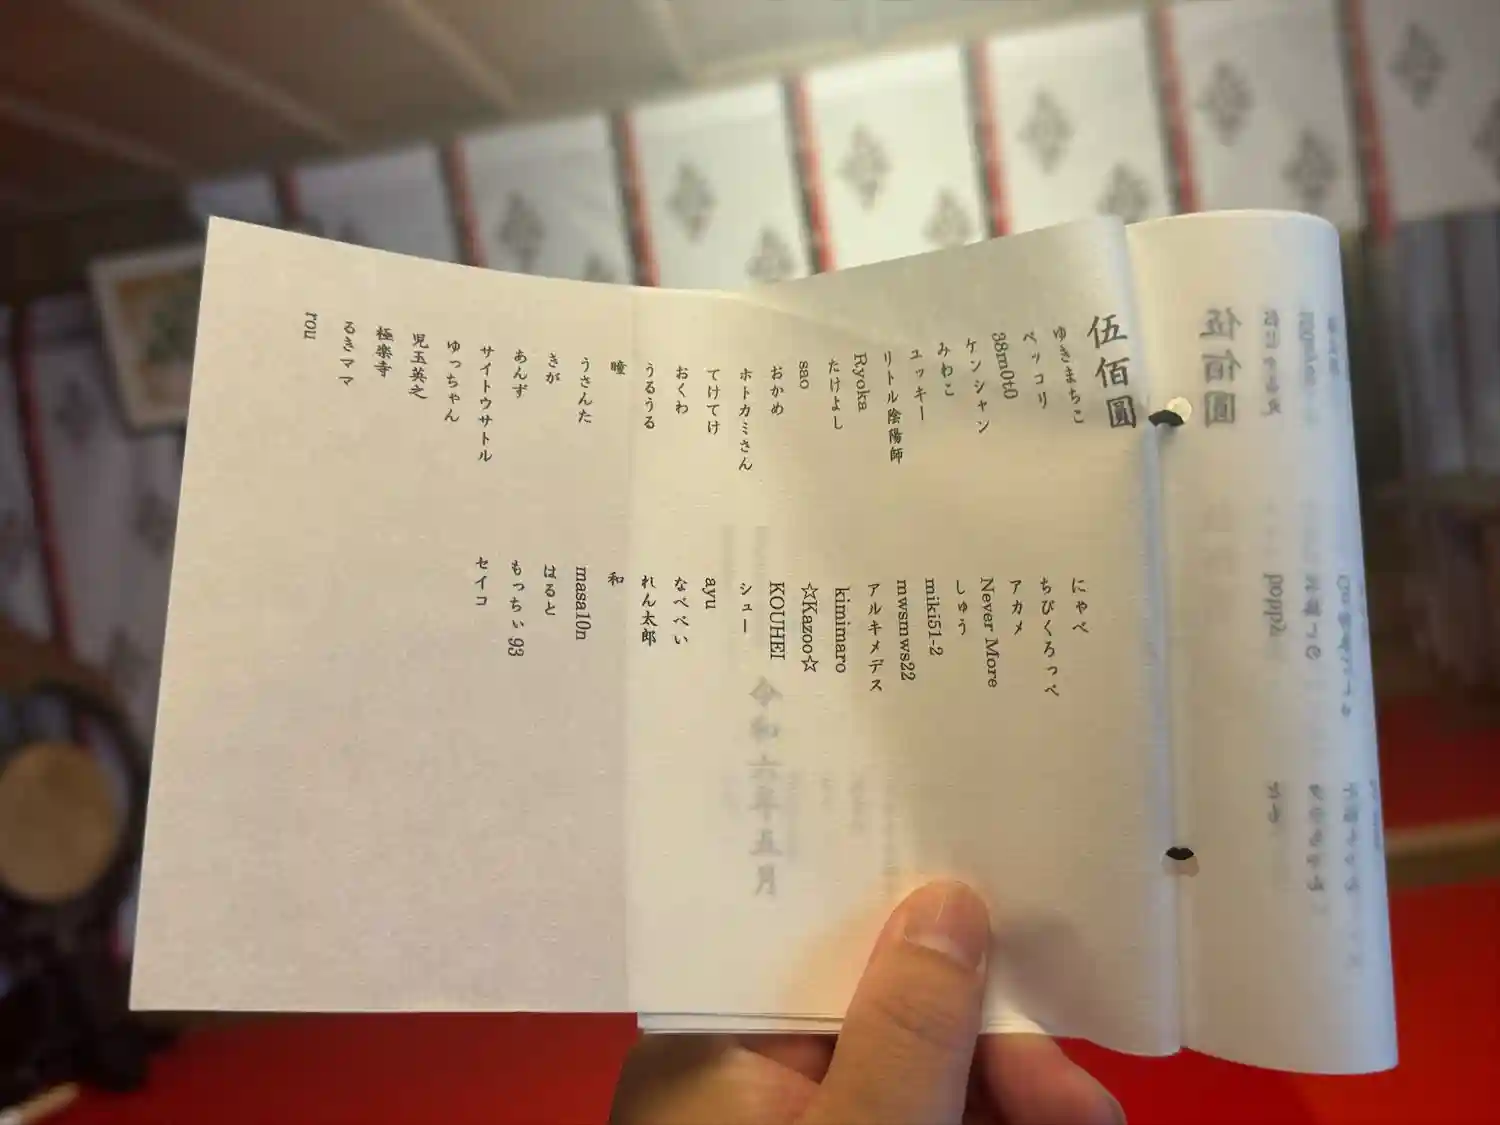 伍佰圓
ゆきまちこ
ペッコリ
38m0t0
ケンシャン
みわこ
ユッキー
リトル陰陽師
Ryoka
たけよし
sao
おかめ
ホトカミさん
てけてけ
おくわ
うるうる
瞳
うさんた
きが
あんず
サイトウサトル
ゆっちゃん
児玉英之
極楽寺
るきママ
rou
にゃべ
ちびくろっぺ
アカメ
Never More
しゅう
miki51-2
mwsmws22
アルキメデス
kimimaro
☆Kazoo☆
KOUHEI
シュー
ayu
なべべい
れん太郎
和
masa10n
はると
もっちぃ93
セイコ
令和六年五月
伍佰圓